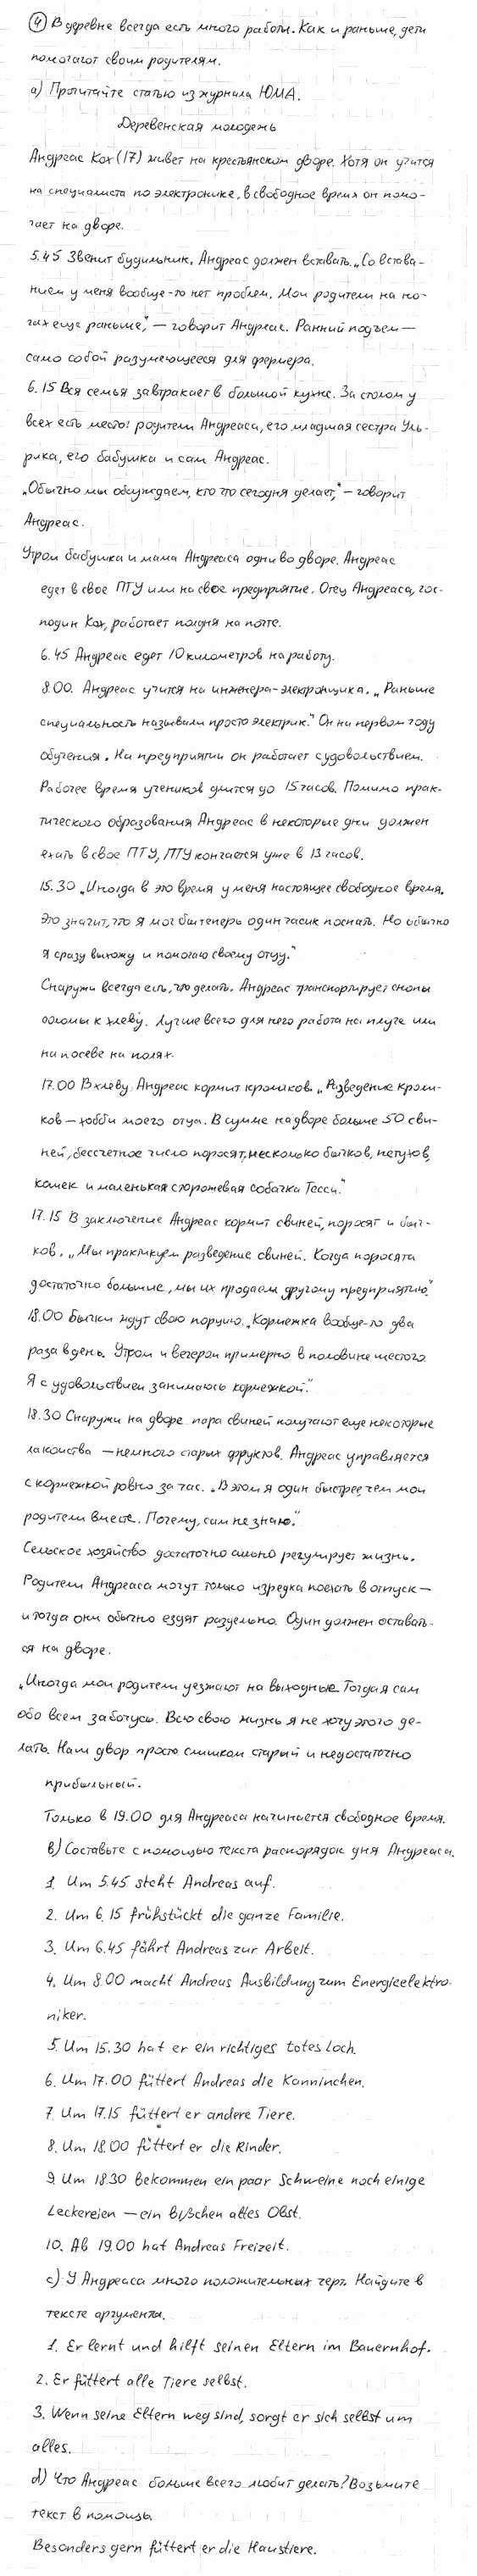 ④ В деревне всегда есть много работы. Как и раньше, дети
помогают своим родителям.
а) Прочитайте статью из журнала ЮМА.
Деревенская молодежь
Андреас Кох (17) живет на крестьянском дворе. Хотя он учится
на специалиста по электронике, в свободное время он помо-
гает на дворе.
5.45 Звенит будильник. Андреас должен вставать. „Со встава-
нием у меня вообще-то нет проблем. Мои родители на но-
гах еще раньше," — говорит Андреас. Ранний подъем —
само собой разумеющееся для фермера.
6.15 Вся семья завтракает в большой кухне. За столом у
всех есть место: родители Андреаса, его младшая сестра Уль-
рика, его бабушка и сам Андреас.
„Обычно мы обсуждаем, кто что сегодня делает," — говорит
Андреас.
Утром бабушка и мама Андреаса одни во дворе. Андреас
едет в свое ПТУ или на свое предприятие. Отец Андреаса, гос-
подин Кох, работает полдня на почте.
6.45 Андреас едет 10 километров на работу.
8.00. Андреас учится на инженера-электронщика. „Раньше
специальность называли просто электрик." Он на первом году
обучения. На предприятии он работает с удовольствием.
Рабочее время учеников длится до 15 часов. Помимо прак-
тического образования Андреас в некоторые дни должен
ехать в свое ПТУ, ПТУ кончается уже в 13 часов.
15.30 „Иногда в это время у меня настоящее свободное время.
Это значит, что я мог бы теперь один часик поспать. Но обычно
я сразу выхожу и помогаю своему отцу."
Снаружи всегда есть, что делать. Андреас транспортирует снопы
соломы к хлеву. Лучше всего для него работа на плуге или
на посеве на полях.
17.00 В хлеву Андреас кормит кроликов. „Разведение кроли-
ков — хобби моего отца. В сумме на дворе больше 50 сви-
ней, бессчетное число поросят, несколько бычков, петухов,
кошек и маленькая сторожевая собачка Тесси."
17.15 В заключение Андреас кормит свиней, поросят и быч-
ков. „Мы практикуем разведение свиней. Когда поросята
достаточно большие, мы их продаем другому предприятию."
18.00 Бычки ждут свою порцию. „Кормежка вообще-то два
раза в день. Утром и вечером примерно в половине шестого.
Я с удовольствием занимаюсь кормежкой."
18.30 Снаружи на дворе пара свиней получают еще некоторые
лакомства — немного старых фруктов. Андреас управляется
с кормежкой ровно за час. „В этом я один быстрее, чем мои
родители вместе. Почему, сам не знаю."
Сельское хозяйство достаточно сильно регулирует жизнь.
Родители Андреаса могут только изредка поехать в отпуск —
и тогда они обычно ездят раздельно. Один должен оставать-
ся на дворе.
„Иногда мои родители уезжают на выходные. Тогда я сам
обо всем забочусь. Всю свою жизнь я не хочу этого де-
лать. Наш двор просто слишком старый и недостаточно
прибыльный.
Только в 19.00 для Андреаса начинается свободное время.
в) Составьте с помощью текста распорядок дня Андреаса.
1. Um 5.45 steht Andreas auf.
2. Um 6.15 frühstückt die ganze Familie.
3. Um 6.45 fährt Andreas zur Arbeit.
4. Um 8.00 macht Andreas Ausbildung zum Energieelektro-
niker.
5. Um 15.30 hat er ein richtiges totes Loch.
6. Um 17.00 füttert Andreas die Kanninchen.
7. Um 17.15 füttert er andere Tiere.
8. Um 18.00 füttert er die Rinder.
9. Um 18.30 bekommen ein paar Schweine noch einige
Leckereien — ein bißchen altes Obst.
10. Ab 19.00 hat Andreas Freizeit.
c) У Андреаса много положительных черт. Найдите в
тексте аргументы.
1. Er lernt und hilft seinen Eltern im Bauernhof.
2. Er füttert alle Tiere selbst.
3. Wenn seine Eltern weg sind, sorgt er sich selbst um
alles.
d) Что Андреас больше всего любит делать? Возьмите
текст в помощь.
Besonders gern füttert er die Haustiere.